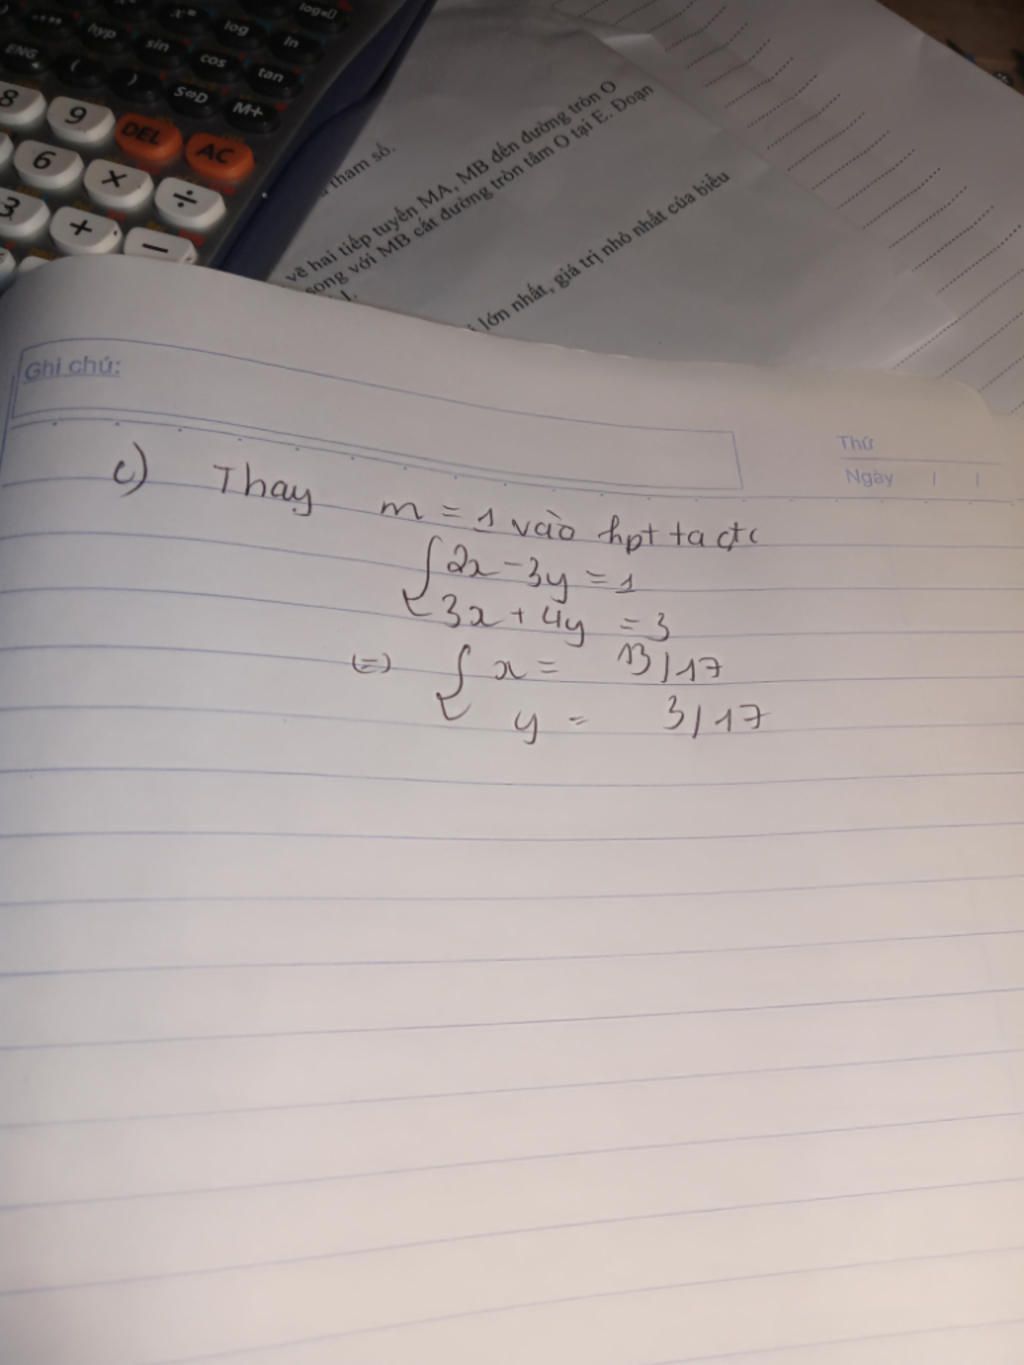 log=0
x■
log
ln
hyp
sin
cos
tan
ENG
(
)
S⇔D
M+
8
9
DEL
AC
6
×
÷
3
+
−
tham số.
vẽ hai tiếp tuyến MA, MB đến đường tròn O
song với MB cắt đường tròn tâm O tại E. Đoạn
lớn nhất, giá trị nhỏ nhất của biểu
Ghi chú:
Thứ
Ngày / /
c) Thay m = 1 vào hpt ta đc
{2x - 3y = 1
3x + 4y = 3
(=) { x = 13/17
y = 3/17